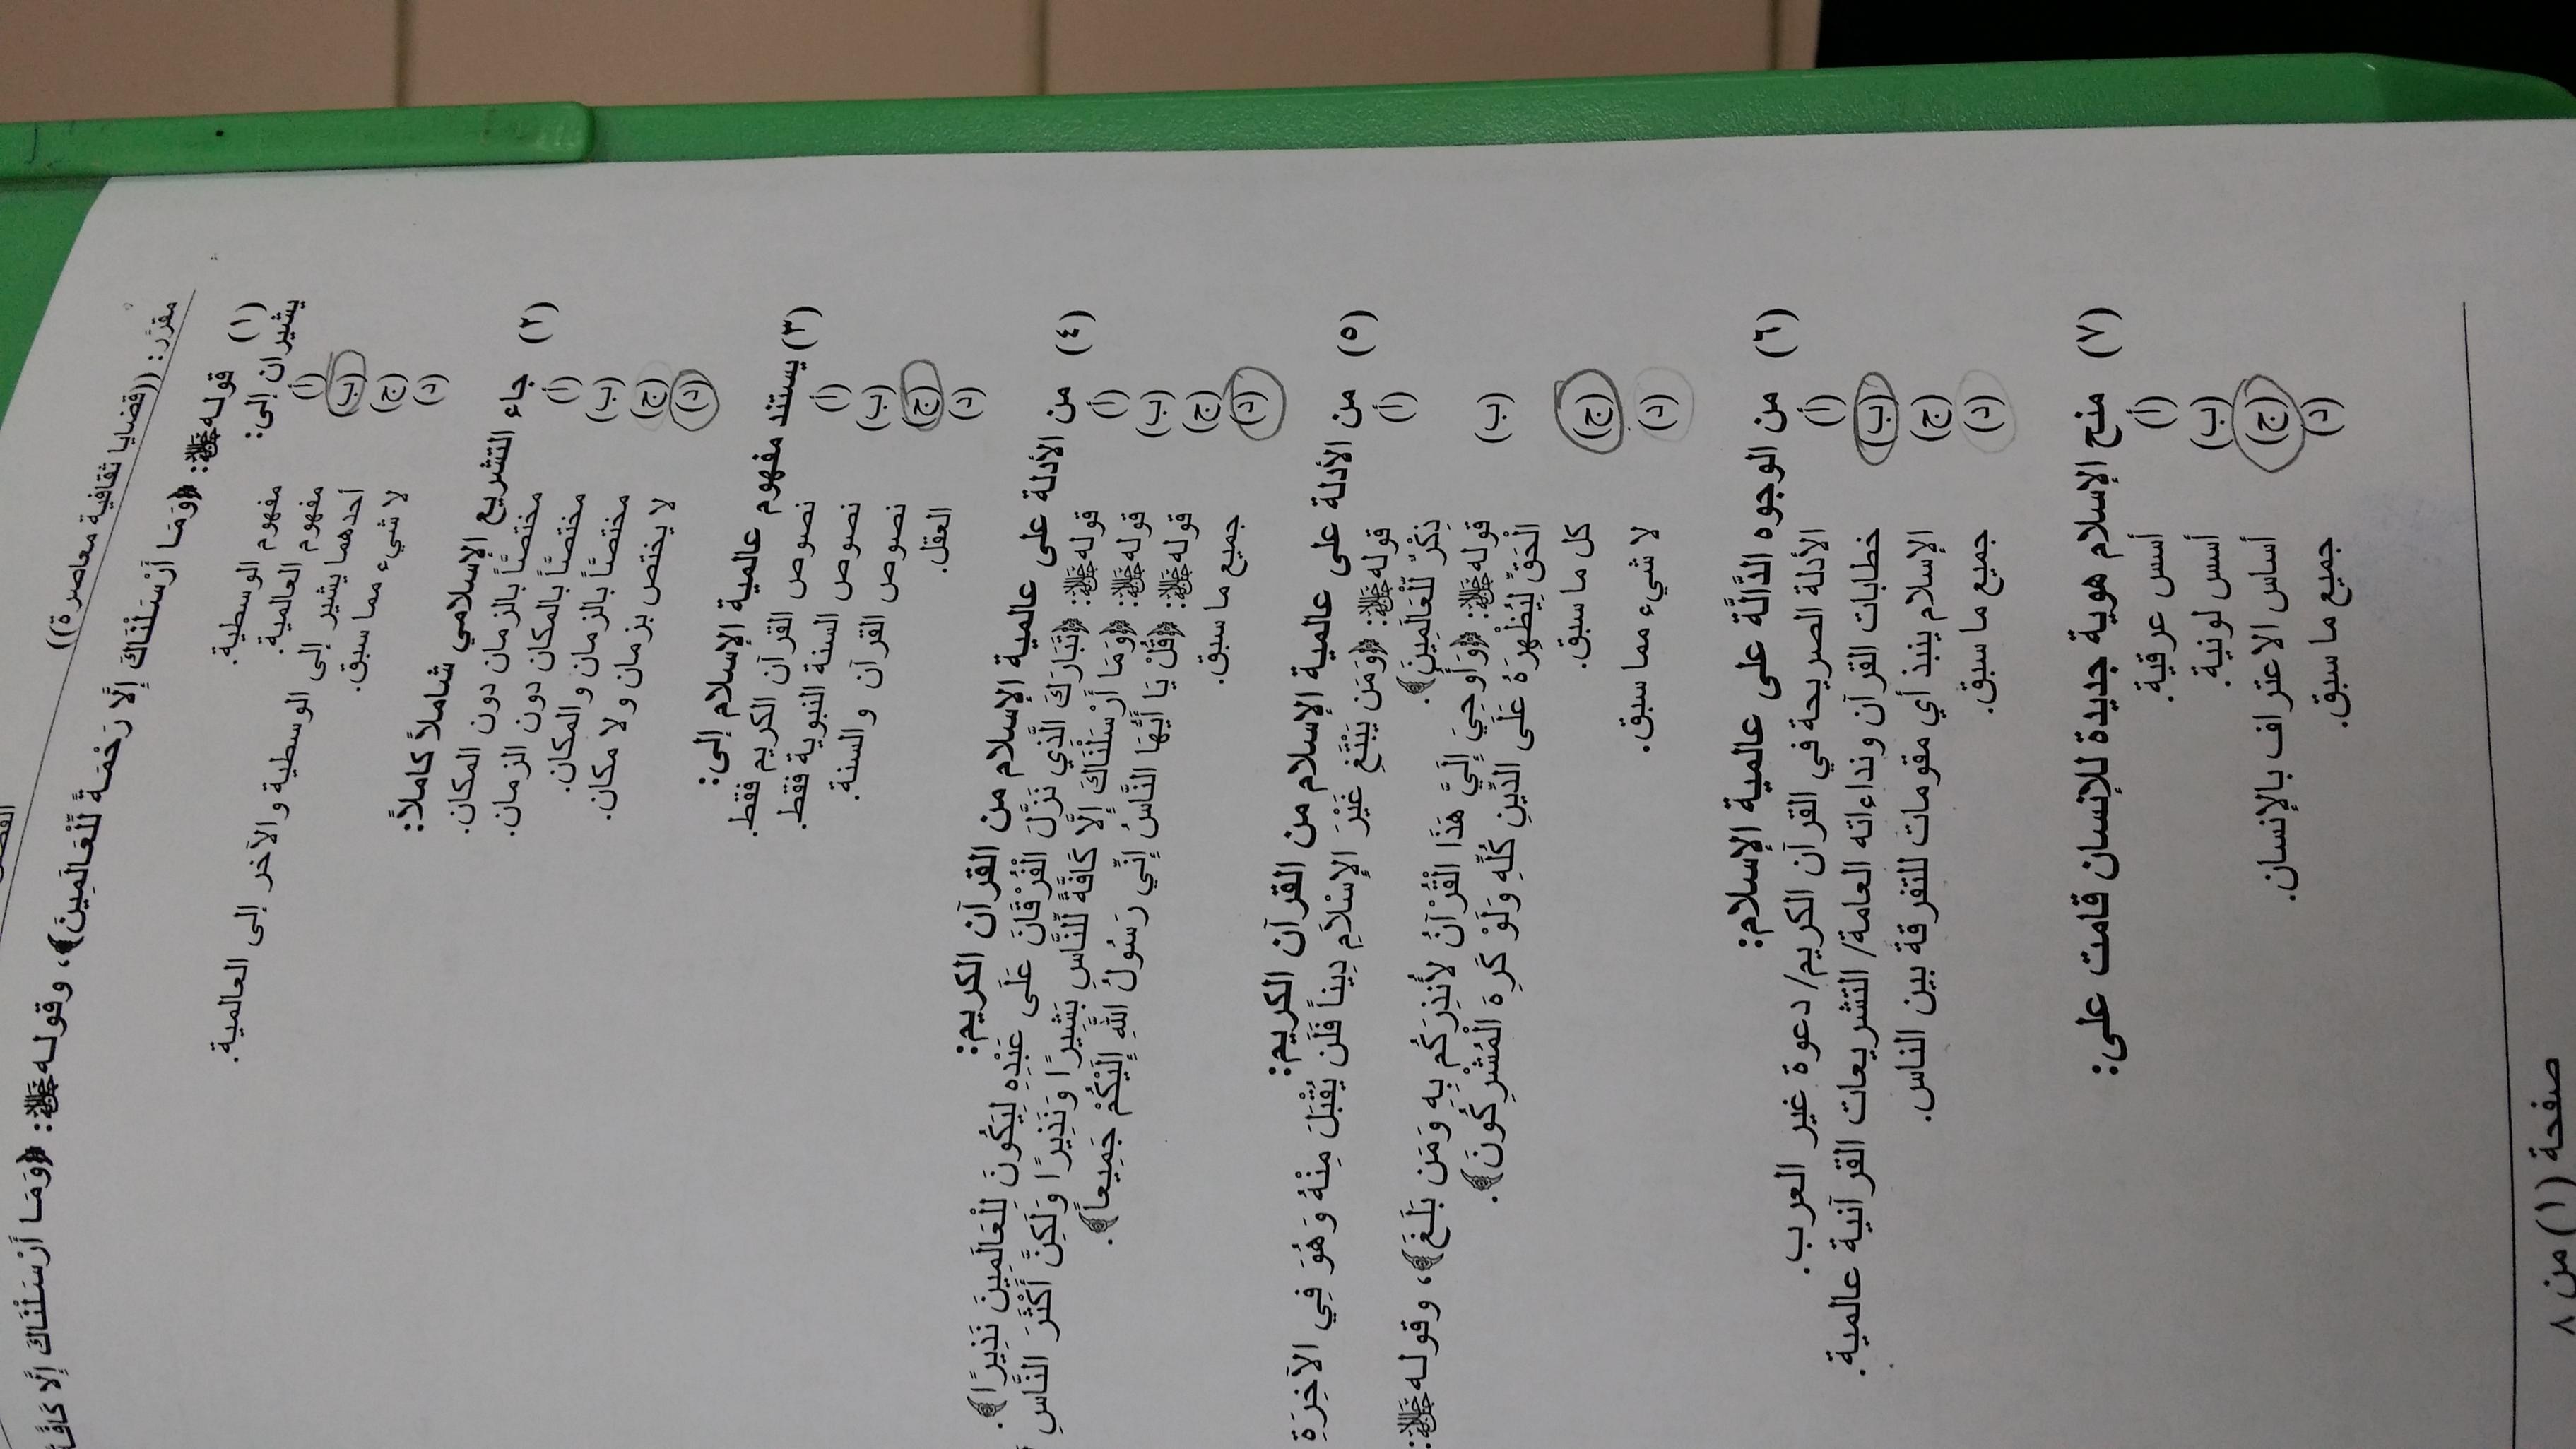 مقرَّر: ((قضايا ثقافية معاصرة))
(١) قوله ﷻ: ﴿وَمَا أَرْسَلْنَاكَ إِلَّا رَحْمَةً لِّلْعَالَمِينَ﴾، وقوله ﷻ: ﴿وَمَا أَرْسَلْنَاكَ إِلَّا كَافَّةً
يشيران إلى:
(أ) مفهوم الوسطية.
(ب) مفهوم العالمية.
(ج) أحدهما يشير إلى الوسطية والآخر إلى العالمية.
(د) لا شيء مما سبق.
(٢) جاء التشريع الإسلامي شاملاً كاملاً:
(أ) مختصًّا بالزمان دون المكان.
(ب) مختصًّا بالمكان دون الزمان.
(ج) مختصًّا بالزمان والمكان.
(د) لا يختص بزمان ولا مكان.
(٣) يستند مفهوم عالمية الإسلام إلى:
(أ) نصوص القرآن الكريم فقط.
(ب) نصوص السنة النبوية فقط.
(ج) نصوص القرآن والسنة.
(د) العقل.
(٤) من الأدلة على عالمية الإسلام من القرآن الكريم:
(أ) قوله ﷻ: ﴿تَبَارَكَ الَّذِي نَزَّلَ الْفُرْقَانَ عَلَى عَبْدِهِ لِيَكُونَ لِلْعَالَمِينَ نَذِيرًا﴾.
(ب) قوله ﷻ: ﴿وَمَا أَرْسَلْنَاكَ إِلَّا كَافَّةً لِّلنَّاسِ بَشِيرًا وَنَذِيرًا وَلَكِنَّ أَكْثَرَ النَّاسِ
(ج) قوله ﷻ: ﴿قُلْ يَا أَيُّهَا النَّاسُ إِنِّي رَسُولُ اللَّهِ إِلَيْكُمْ جَمِيعاً﴾.
(د) جميع ما سبق.
(٥) من الأدلة على عالمية الإسلام من القرآن الكريم:
(أ) قوله ﷻ: ﴿وَمَن يَبْتَغِ غَيْرَ الإِسْلاَمِ دِيناً فَلَن يُقْبَلَ مِنْهُ وَهُوَ فِي الآخِرَةِ
ذِكْرٌ لِّلْعَالَمِينَ﴾.
(ب) قوله ﷻ: ﴿وَأُوحِيَ إِلَيَّ هَذَا الْقُرْآنُ لأُنذِرَكُم بِهِ وَمَن بَلَغَ﴾، وقوله ﷻ:
الْحَقِّ لِيُظْهِرَهُ عَلَى الدِّينِ كُلِّهِ وَلَوْ كَرِهَ الْمُشْرِكُونَ﴾.
(ج) كل ما سبق.
(د) لا شيء مما سبق.
(٦) من الوجوه الدَّالَّة على عالمية الإسلام:
(أ) الأدلة الصريحة في القرآن الكريم/ دعوة غير العرب.
(ب) خطابات القرآن ونداءاته العامة/ التشريعات القرآنية عالمية.
(ج) الإسلام ينبذ أي مقومات للتفرقة بين الناس.
(د) جميع ما سبق.
(٧) منح الإسلام هوية جديدة للإنسان قامت على:
(أ) أسس عرقية.
(ب) أسس لونية.
(ج) أساس الاعتراف بالإنسان.
(د) جميع ما سبق.
صفحة (١) من ٨